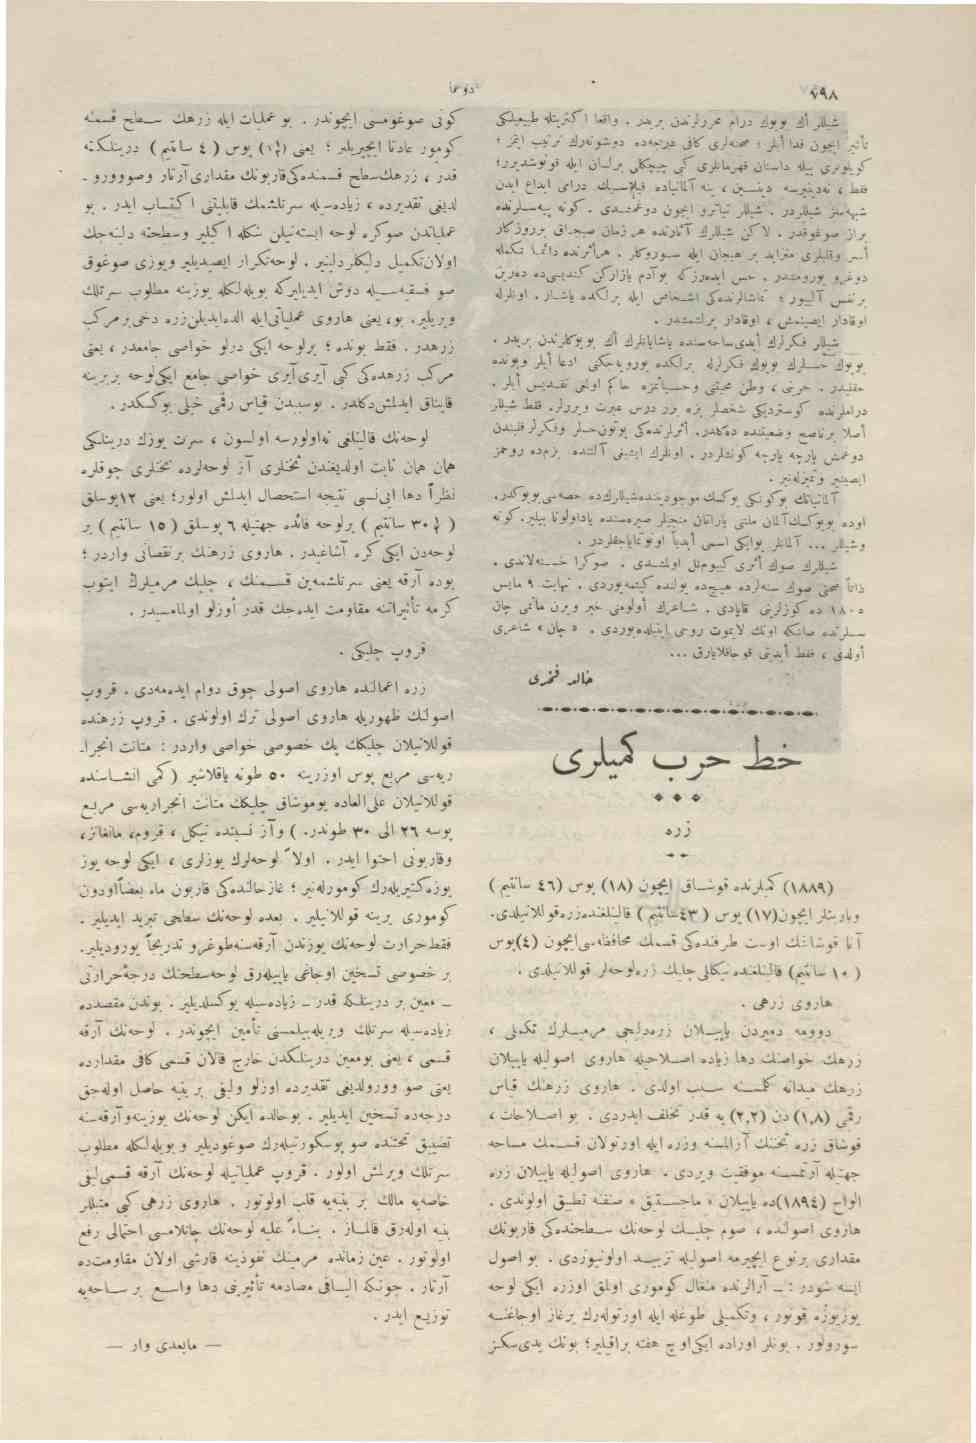 ٧٩٨
دونما
شيللر أك بويوك درام محررلرندن بريدر . واقعا اكثريتله طبيعيلكى
تأثير ايچون فدا أيلر ؛ صحنه‌لرى كافى درجه‌ده دوشونه‌رك ترتيب ايتمز ؛
كويلولرى بيله داستان قهرمانلرى كبى چيچكلى برلسان ايله قونوشديرر؛
فقط ، نه‌دينيرسه دينسين ، ينه آلمانياده فيلوسوفيك درامى ابداع ايدن
شبهه‌سز شيللردر . شيللر تياترو ايچون دوغمشدى . كوته پيه‌سلرنده
براز صوغوقدر . لاكن شيللرك آثارنده هر زمان صيجاق برروزكار
أسر وقلبلرى متزايد بر هيجان ايله سوروكلر . هر أثرنده دائما تكمله
دوغرو يورومشدر . حس ايده‌رزكه بوآدم يازاركن كنديسى‌ده ده‌رين
برنفس آلييور ؛ تماشالرنده‌كى اشخاص ايله برلكده ياشار . اونلرله
اوقادار ايصينمش ، اوقادار برلشمشدر .
شيللر فكرلرك أبدى‌ساحه‌سنده ياشايانلرك أك بويوكلرندن بريدر .
بويوك حسلرك بويوك فكرلرله برلكده يورويه‌جكنى ادعا أيلر وبونده
حقليدر . حريتى ، وطن محبتنى وحسياتمزه حاكم اولمنى تقديس أيلر .
دراملرنده كوسترديكى شخصلر بزه برر درس عبرت ويررلر. فقط شيللر
أصلا برناصح وضعيتنده ده‌كلدر. أثرلرنده‌كى بوتون‌حسلر وفكرلر قلبندن
دوغمش پارچه پارچه كونشلردر . اونلرك ايشيغى آلتنده بزم‌ده روحمز
ايصينير وتميزله‌نير .
آلمانيانك بوكونكى يوكسك موجوديتنده‌شيللرك‌ده حصه‌سى‌بويوكدر.
اوده بويوك‌آلمان ملتنى ياراتان منجيلر صيره‌سنده ياداولونا بيلير.كوته
وشيللر ... آلمانلر بوايكى اسمى أبدياً اونوتمايه‌جقلردر .
شيللرك صوك أثرى كييوم‌تل اولمشدى . صوكرا خسته‌لاندى .
ذاتاً صحتى صوك سنه‌لرده هيچ‌ده يولنده كيتمه‌يوردى . نهايت ٩ مايس
١٨٠٥ ده كوزلرينى قاپادى . شاعرك أولومنى خبر ويرن ماتمى چان
سسلرنده صانكه اونك لايموت روحى ايكليده‌يوردى . « چان » شاعرى
أولدى ، فقط أبديتى قوجاقلايارق ...
خالد فخرى
خط حرب كميلرى
زره
(١٨٨٩) كميلرنده قوشاق ايچون (١٨) پوس (٤٦ سانتيم )
وباربتلر ايچون(١٧) پوس ( ٤٣سانتيم ) قالينلغنده‌زره‌قوللانيلدى.
آنا قوشاغنك اوست طرفنده‌كى قسمك محافظه‌سى‌ايچون (٤)پوس
( ١٠ سانتيم) قالينلغنده نيكللى چليك زره‌لوحه‌لر قوللانيلدى .
هاروى زرهى .
دوومه دميردن ياپيلان زره‌دلجى مرميلرك تكملى ،
زرهك خواصنك دها زياده اصلاحيله هاروى اصوليله ياپيلان
زرهك ميدانه كلمسنه سبب اولدى . هاروى زرهنك قياس
رقمى (١,٨) دن (٢,٢) يه قدر تخلف ايدردى . بو اصلاحات ،
قوشاق زره تختنك آزالمسنه وزره ايله اورتولان قسمك مساحه
جهتيله آرتمسنه موفقيت ويردى . هاروى اصوليله ياپيلان زره
الواح (١٨٩٤)ده ياپيلان « ماجستيق » صنفنه تطبيق اولوندى .
هاروى اصولنده ، صوم چليك لوحه‌نك سطحنده‌كى قاربونك
مقدارى برنوع ايچيرمه اصوليله تزييد اولونيوردى . بو اصول
ايسه شودر : ـ آرالرنده منغال كومورى اولمق اوزره ايكى لوحه
يوزيوزه قونور ، وتكملى طوغله ايله اورتوله‌رك برغاز اوجاغنه
سورولور . بونلر اوراده ايكى‌اوچ هفته براقيلير؛ بونك يدى‌سكز
كونى صوغومسى ايچوندر . بو عمليات ايله زرهك سطح قسمنه
كومور عادتا ايچيريلير ؛ يعنى (١½) پوس ( ٤ سانتيم ) درينلكنه
قدر ، زرهك‌سطح قسمنده‌كى‌قاربونك مقدارى‌آرتار وصوويرو ـ
لديغى تقديرده ، زياده‌سيله سرتلشمك قابليتنى اكتساب ايدر . بو
عملياتدن صوكره لوحه ايسته‌نيلن شكله اكيلير وسطحنه دلينه‌جك
اولان‌تكميل دليكلردلينير . لوحه‌تكرار ايصيديلير ويوزى صوغوق
صو فسقيه‌سيله دوش ايديليركه بويله‌لكله يوزينه مطلوب سرتلك
ويريلير. بو، يعنى هاروى عملياتى‌ايله الده‌ايديلن‌زره دخى‌برمركب
زرهدر . فقط بونده ؛ برلوحه ايكى درلو خواصى جامعدر ، يعنى
مركب زرهده‌كى كبى آيرى‌آيرى خواصى جامع ايكى‌لوحه بربرينه
قايناق ايدلمش‌دكلدر . بوسببدن قياس رقمى خيلى يوكسكدر .
لوحه‌نك قالينلغى نه‌اولورسه اولسون ، سرت يوزك درينلكى
همان همان ثابت اولديغندن تختلرى آز لوحه‌لرده تختلرى چوقلره
نظراً دها ايى‌نسبى نتيجه استحصال ايدلمش اولور؛ يعنى ١٢پوسلق
( ٣٠½ سانتيم ) برلوحه فائده جهتيله ٦ پوسلق ( ١٥ سانتيم ) بر
لوحه‌دن ايكى كره آشاغيدر . هاروى زرهنك برنقصانى واردر ؛
بوده آرقه يعنى سرتلشمه‌ين قسمنك ، چليك مرميلرك ايتوب
كرمه تأثيراتنه مقاومت ايده‌جك قدر أوزلو اولماسيدر .
قروپ چليكى .
زره اعمالنده هاروى اصولى چوق دوام ايده‌مه‌دى . قروپ
اصولنك ظهوريله هاروى اصولى ترك اولوندى . قروپ زرهنده
قوللانيلان چليكك پك خصوصى خواصى واردر : متانت انجرا-
ريه‌سى مربع پوس اوزرينه ٥٠ طونه ياقلاشير ( كمى انشاسنده
قوللانيلان على‌العاده يوموشاق چليكك متانت انجراريه‌سى مربع
پوسه ٢٦ الى ٣٠ طوندر. ) وآز نسبتده نيكل ، قروم، مانغانز،
وقاربونى احتوا ايدر . اولا ً لوحه‌لرك يوزلرى ، ايكى لوحه يوز
يوزه‌كتيريله‌رك كومورله‌نير ؛ غازحالنده‌كى قاربون ماه بعضاًاودون
كومورى يرينه قوللانيلير . بعده لوحه‌نك سطحى تبريد ايديلير .
فقط حرارت لوحه‌نك يوزندن آرقه‌سنه‌طوغرو تدريجاً يوروديلير.
بر خصوصى تسخين اوجاغى ياپيله‌رق لوحه‌سطحنك درجۀحرارتى
ـ معين بر درينلكه قدر ـ زياده‌سيله يوكسلديلير . بوندن مقصدده
زياده‌سيله سرتلك ويريله‌بيلمسنى تأمين ايچوندر . لوحه‌نك آرقه
قسمى ، يعنى بومعين درينلكدن خارج قالان قسمى كافى مقدارده
يعنى صو وورولديغى تقديرده اوزلو وليفى بر بنيه حاصل اوله‌جق
درجه‌ده تسخين ايديلير . بوحالده ايكن لوحه‌نك يوزينه‌وآرقه‌سنه
تضييق تحتنده صو پوسكورتيله‌رك صوغوديلير و بويله‌لكله مطلوب
سرتلك ويرلمش اولور . قروپ عملياتيله لوحه‌نك آرقه قسمى‌ليفى
خاصه‌يه مالك بر بنيه‌يه قلب اولونور . هاروى زرهى كبى متبللر
بنيه اوله‌رق قالماز . بناءً عليه لوحه‌نك چاتلامسى احتمالى رفع
اولونور . عين زمانده مرمينك نفوذينه قارشى اولان مقاومت‌ده
آرتار . چونكه اليافى مصادمه تأثيرينى دها واسع بر ساحه‌يه
توزيع ايدر .
— مابعدى وار —